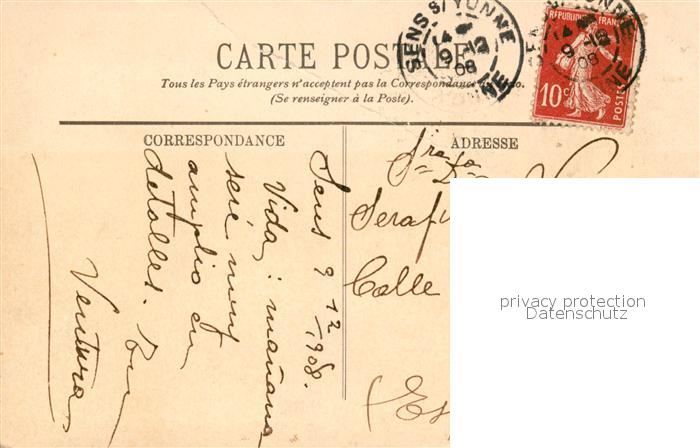 CARTE POSTALE
Tous les Pays étrangers n'acceptent pas la Correspondance au recto.
(Se renseigner à la Poste).
CORRESPONDANCE
ADRESSE
SENS S/YONNE
9-12
08
YONNE
REPUBLIQUE FRANÇAISE
10c
POSTES
Sens 9 12/1908.
Vida; mañana
seré muy
amplio en
detalles. Tu
Ventura
Calle
privacy protection
Datenschutz